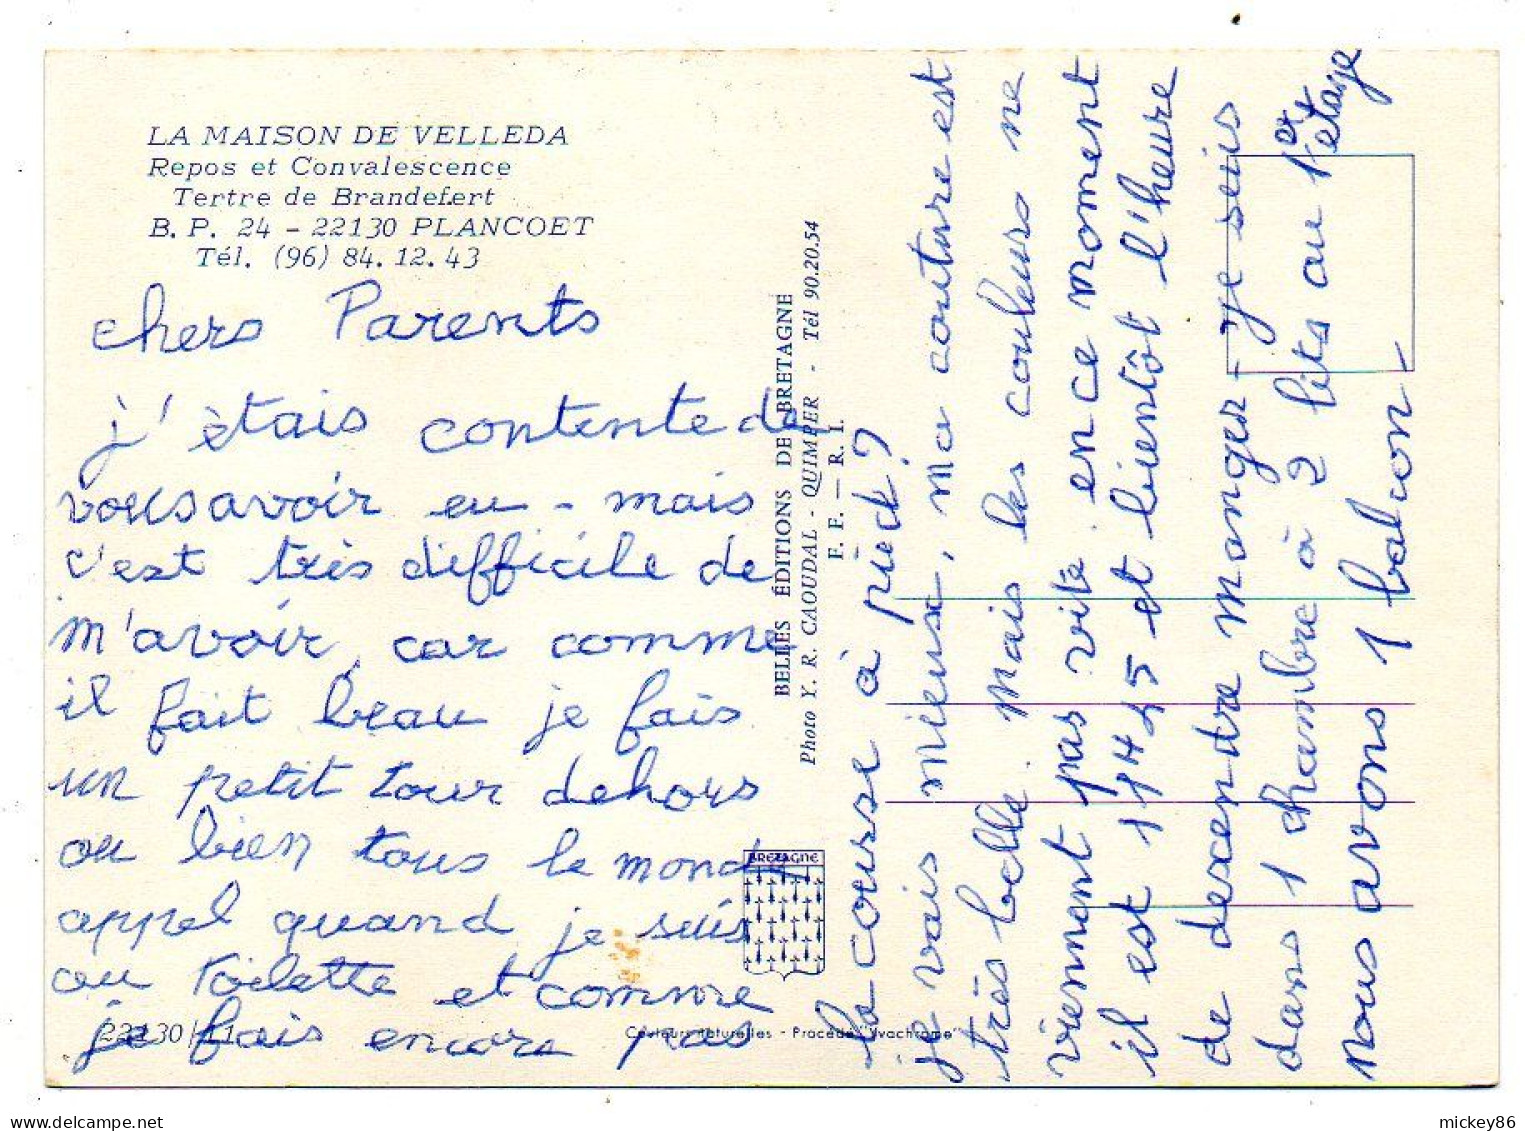 LA MAISON DE VELLEDA
Repos et Convalescence
Tertre de Brandefert
B. P. 24 - 22130 PLANCOET
Tél. (96) 84. 12. 43
chers Parents
j'étais contente de
vous avoir eu - mais
c'est très difficile de
m'avoir, car comme
il fait beau je fais
un petit tour dehors
ou bien tous le monde
appel quand je suis
au toilette et comme
je fais encore pas
22130/11
Couleurs naturelles - Procédé "Yvochrome"
BRETAGNE
BELLES ÉDITIONS DE BRETAGNE
Photo Y. R. CAOUDAL - QUIMPER - Tél 90.20.54
F. F. — R. I.
la course à pied ?
je vais mieux, ma couture est
très belle. mais les couleurs ne
viennent pas vite. en ce moment
il est 11H45 et bientôt l'heure
de descendre manger - je suis
dans 1 chambre à 2 lits au 1er etage
nous avons 1 balcon -
mickey86